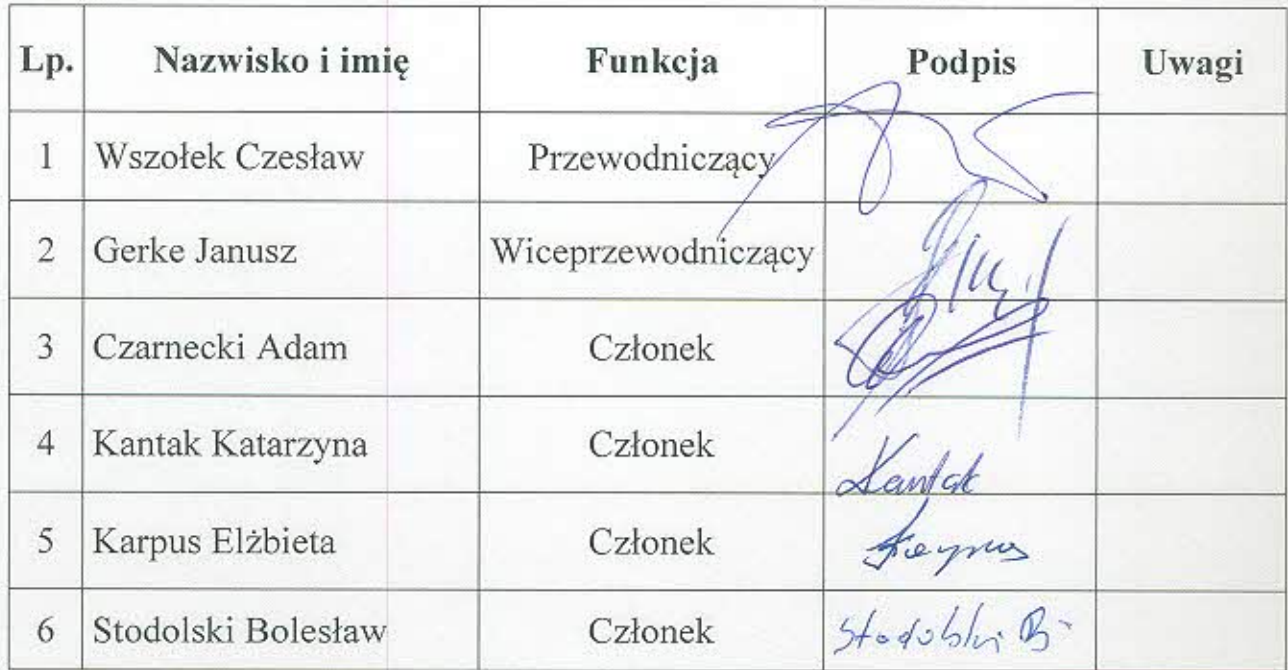 Lp. Nazwisko i imię Funkcja Podpis Uwagi
1 Wszołek Czesław Przewodniczący
2 Gerke Janusz Wiceprzewodniczący
3 Czarnecki Adam Członek
4 Kantak Katarzyna Członek Kantak
5 Karpus Elżbieta Członek
6 Stodolski Bolesław Członek Stodolski B